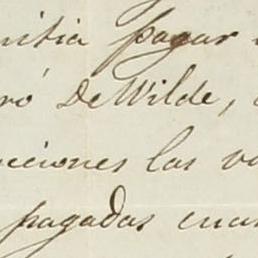 mitia pagar
ró DeWilde,
cciones las va
pagadas cuan